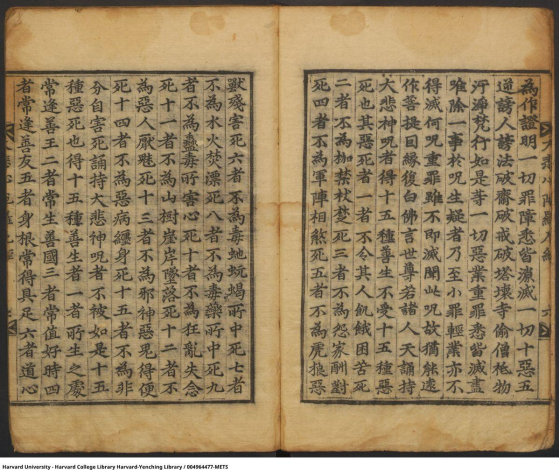 為作證明一切罪障悉皆消滅一切十惡五
逆謗人謗法破齋破戒破塔壞寺偷僧祇物
汙淨梵行如是等一切惡業重罪悉皆滅盡
唯除一事於呪生疑者乃至小罪輕業亦不
得滅何況重罪雖不即滅重罪猶能遠
作菩提因緣復白佛言世尊若諸人天誦持
大悲神呪者得十五種善生不受十五種惡
死也其惡死者一者不令其人飢餓困苦死
二者不為枷禁杖楚死三者不為怨家酬對
死四者不為軍陣相煞死五者不為虎狼惡
獸殘害死六者不為毒蛇蚖蝎所中死七者
不為水火焚漂死八者不為毒藥所中死九
者不為蠱毒所害死十者不為狂亂失念
死十一者不為山樹崖岸墜落死十二者不
為惡人厭魅死十三者不為邪神惡鬼得便
死十四者不為惡病纏身死十五者不為非
分自害死誦持大悲神呪者不被如是十五
種惡死也得十五種善生者一者所生之處
常逢善王二者常生善國三者常值好時四
者常逢善友五者身根常得具足六者道心
Harvard University - Harvard College Library Harvard-Yenching Library / 004964477-METS